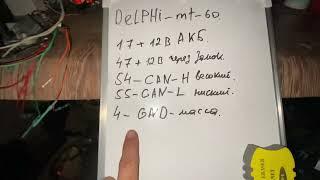 DeLPHi-mt-60.
17 + 12В АКБ.
47 + 12В через Замок.
54-CAN-H высокий.
55-CAN-L ниский.
4-GND-масса.